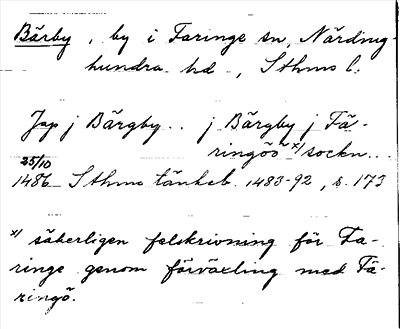 Bärby, by i Faringe sn, Närding-
hundra hd, Sthms l.
Jap j Bärgby.. j Bärgby j Fä-
ringöö x/ sockn..
25/10
1486 Sthms tänkeb. 1483-92, s. 173
x/ säkerligen felskrivning för Fa-
ringe genom förväxling med Fä-
ringö.